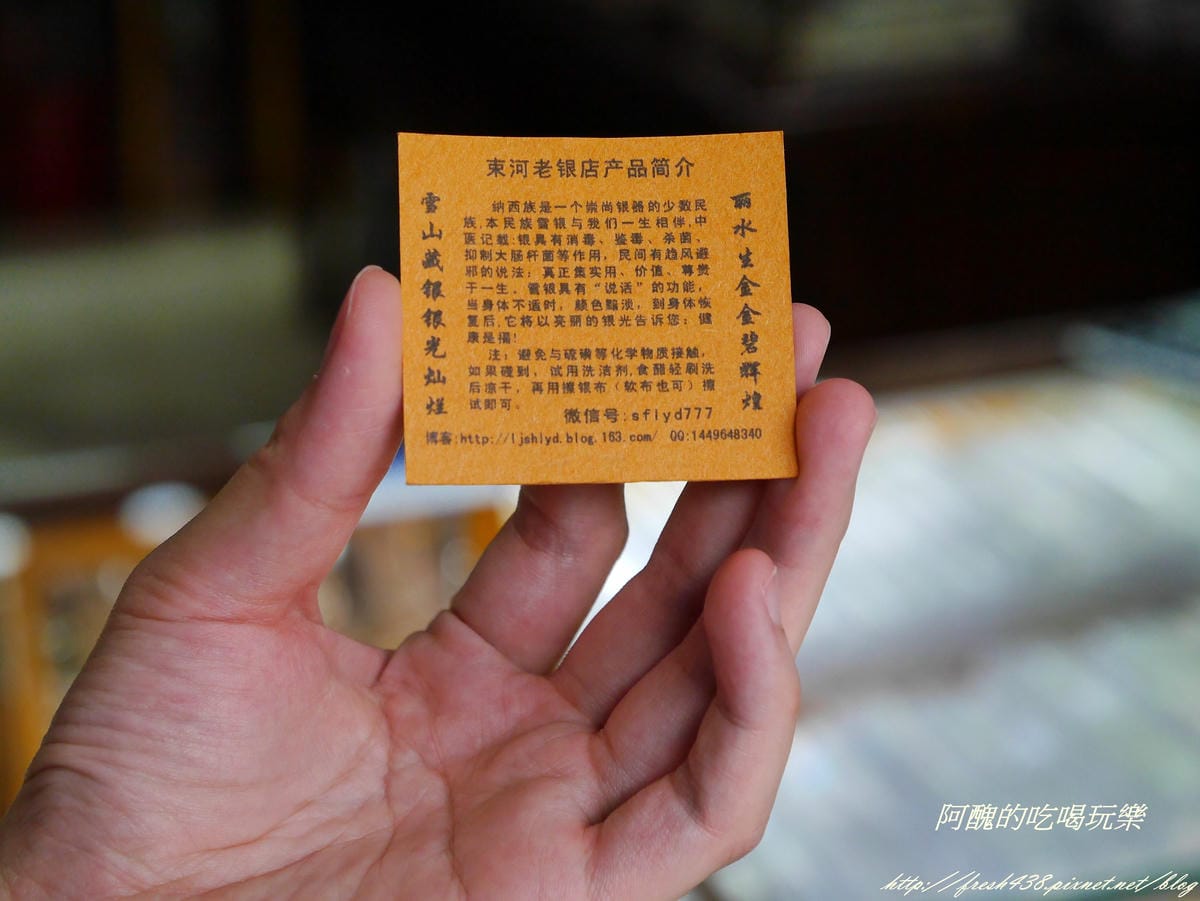 束河老银店产品简介
丽水生金金碧辉煌
雪山藏银银光灿烂
纳西族是一个崇尚银器的少数民
族,本民族雪银与我们一生相伴,中
医记载:银具有消毒、鉴毒、杀菌、
抑制大肠杆菌等作用，民间有趋风避
邪的说法；真正集实用、价值、尊贵
于一生。雪银具有“说话”的功能，
当身体不适时，颜色黯淡，到身体恢
复后,它将以亮丽的银光告诉您：健
康是福!
注：避免与硫磺等化学物质接触，
如果碰到，试用洗洁剂,食醋轻刷洗
后凉干，再用擦银布（软布也可）擦
试即可。
微信号:sflyd777
博客:http://ljshlyd.blog.163.com/ QQ:1449648340
阿醜的吃喝玩樂
http://fresh438.pixnet.net/blog